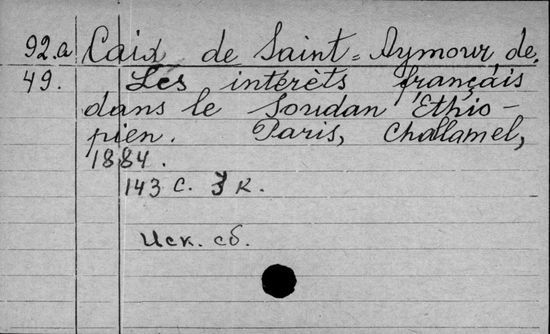 92.a Caix de Saint-Aymour de.
49. Les intérèts français
dans le Soudan Ethio-
pien. Paris, Challamel,
1884.
143 С. К.
Иск. сб.